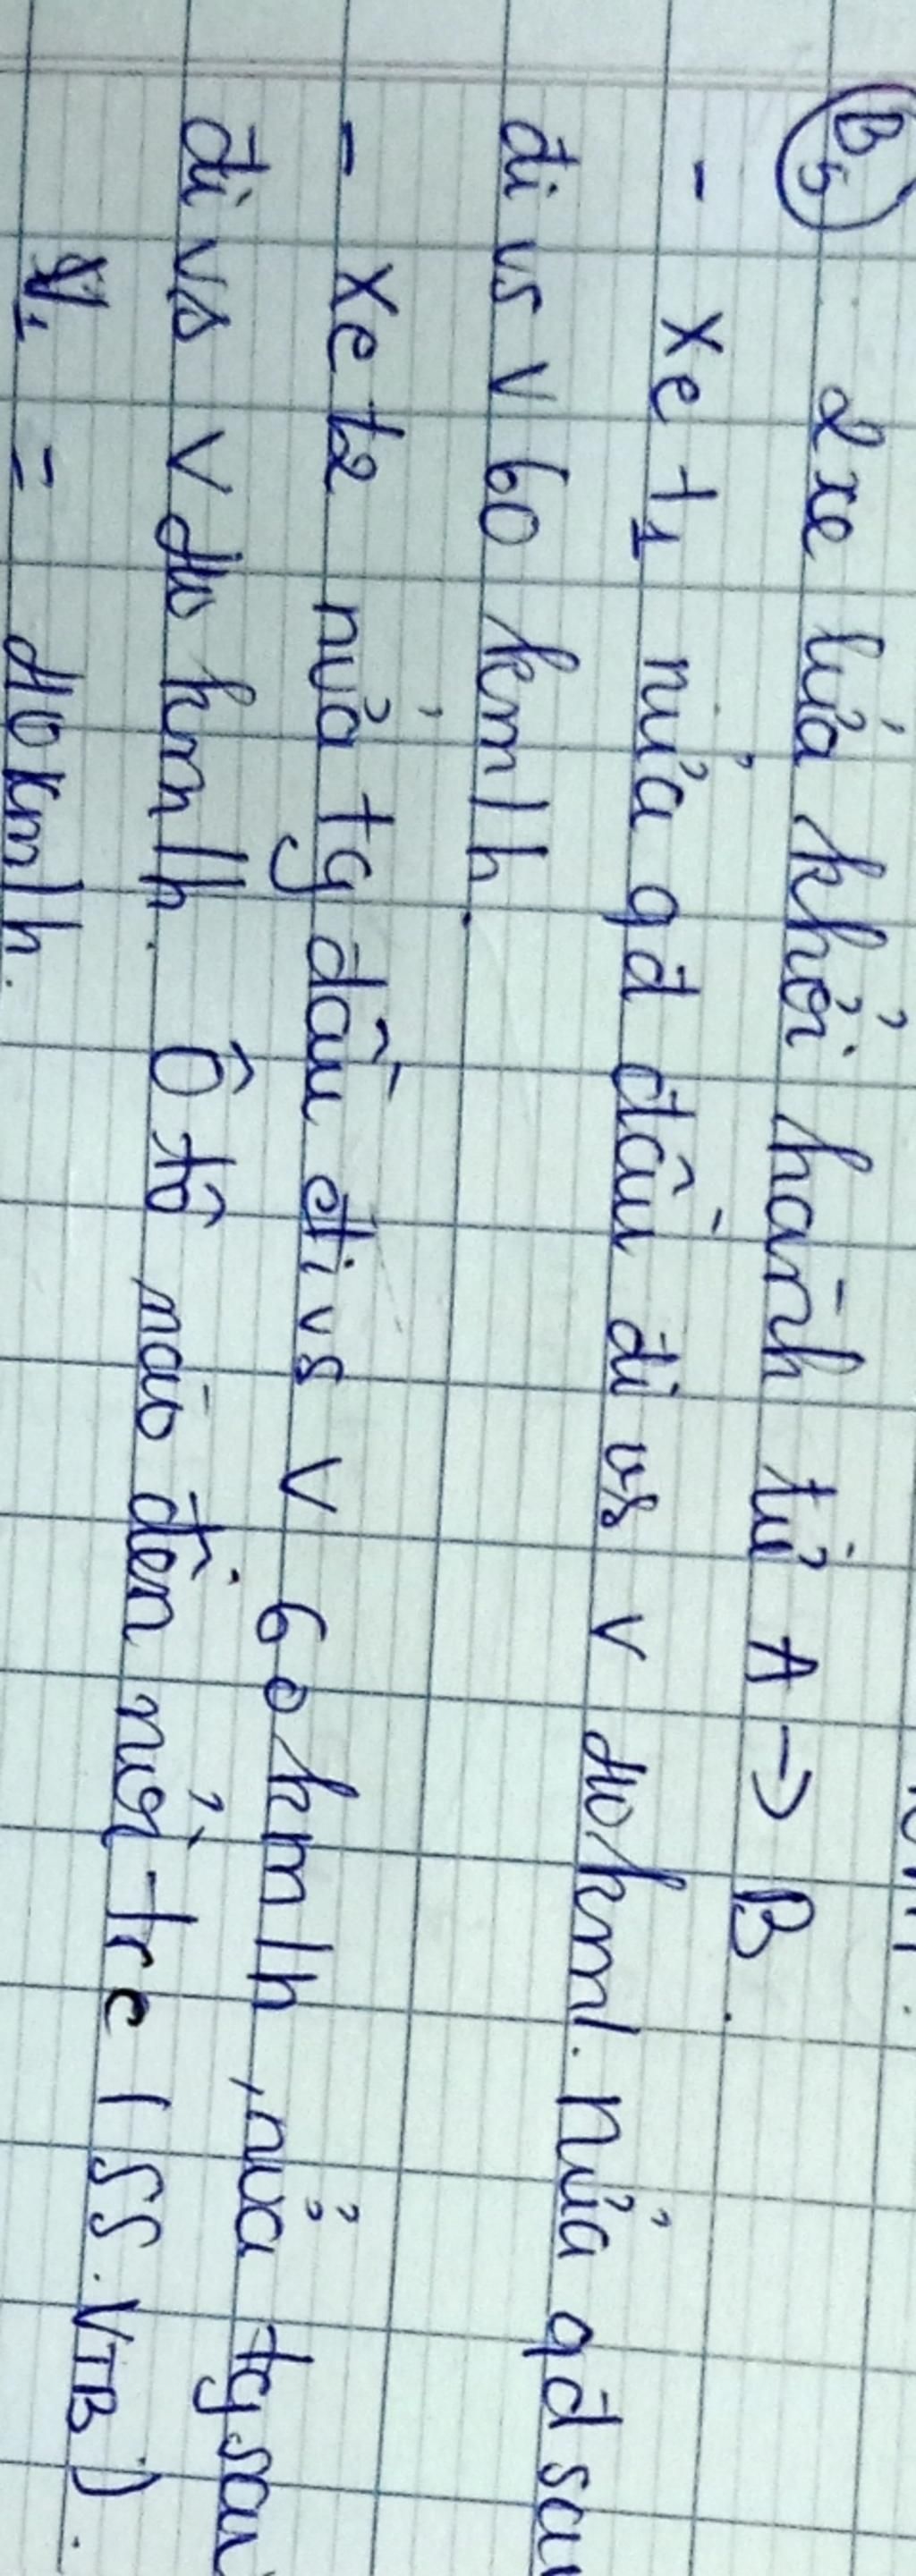 B5 2 xe lửa khởi hành từ A → B.
- Xe t1 nửa qđ đầu đi vs v 40 km/. Nửa qđ sau
đi vs v 60 km/h.
- Xe t2 nửa tg đầu đi vs v 60 km/h, nửa tg sau
đi vs v 40 km/h. Ô tô nào đến nơi trc (SS. VTB).
V1 = 40 km/h.